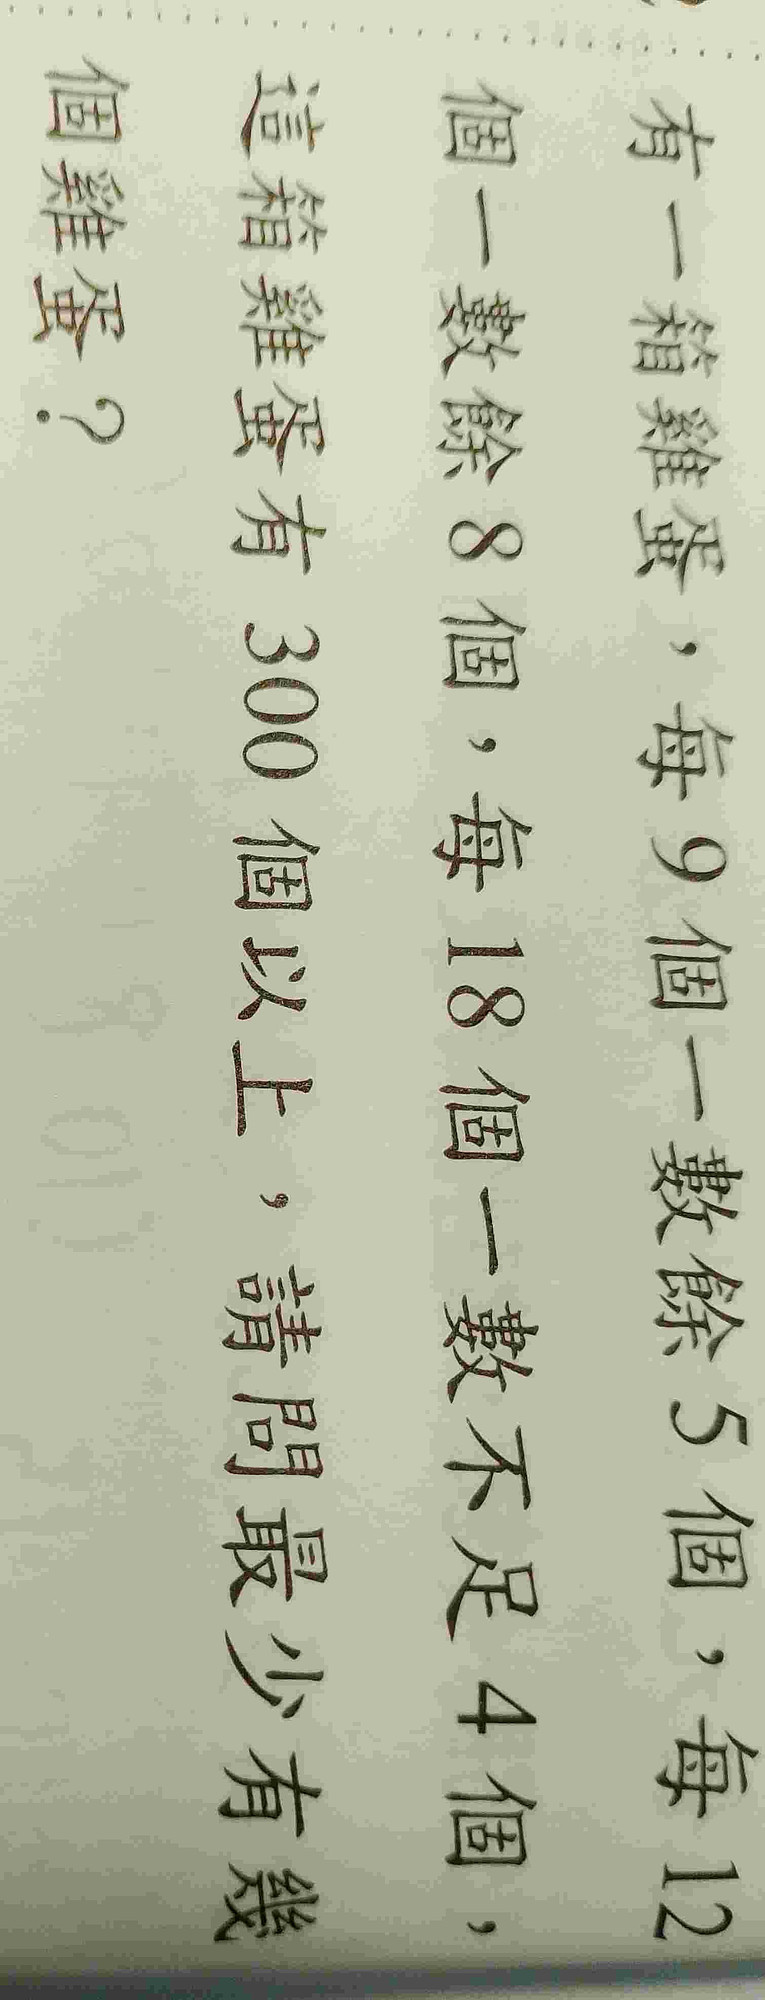 有一箱雞蛋，每9個一數餘5個，每12
個一數餘8個，每18個一數不足4個，
這箱雞蛋有300個以上，請問最少有幾
個雞蛋？